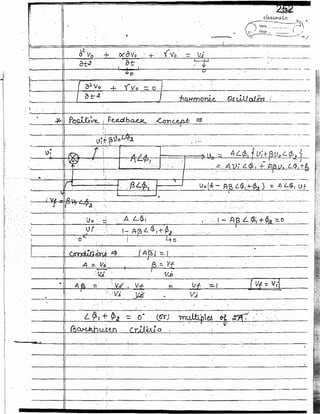 252
classmate
Date
Page
∂²Vo/∂t² + α∂Vo/∂t + γVo = Vi
∂²Vo/∂t² + γVo = 0
harmonic Oscillation
* Positive Feedback Concept ⇒
Ui + βUo∠φ2
Ui
A∠φ1
Uo = A∠φ1 {Ui + βUo∠φ2}
= AUi∠φ1 + AβUo∠φ1+φ2
β∠φ2
Uo(1 - Aβ∠φ1+φ2) = A∠φ1 Ui
Vf = βVo∠φ2
Uo/Ui = A∠φ1 / 1 - Aβ∠φ1+φ2
1 - Aβ∠φ1+φ2 = 0
Conditions ⇒ |Aβ| = 1
A = Vo/Vi , β = Vf/Vo
Aβ = Vo/Vi · Vf/Vo = Vf/Vi = 1 [Vf = Vi]
∠φ1+φ2 = 0° (or) multiples of 2π
Barkhausen Criteria